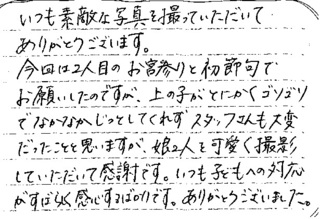 いつも素敵な写真を撮っていただいて
ありがとうございます。
今回は2人目のお宮参りと初節句で
お願いしたのですが、上の子がとにかくゴソゴソ
でなかなかじっとしてくれずスタッフさんも大変
だったことと思いますが、娘2人を可愛く撮影
していただいて感謝です。いつも子どもへの対応
がすばらしく感心するばかりです。ありがとうございました。